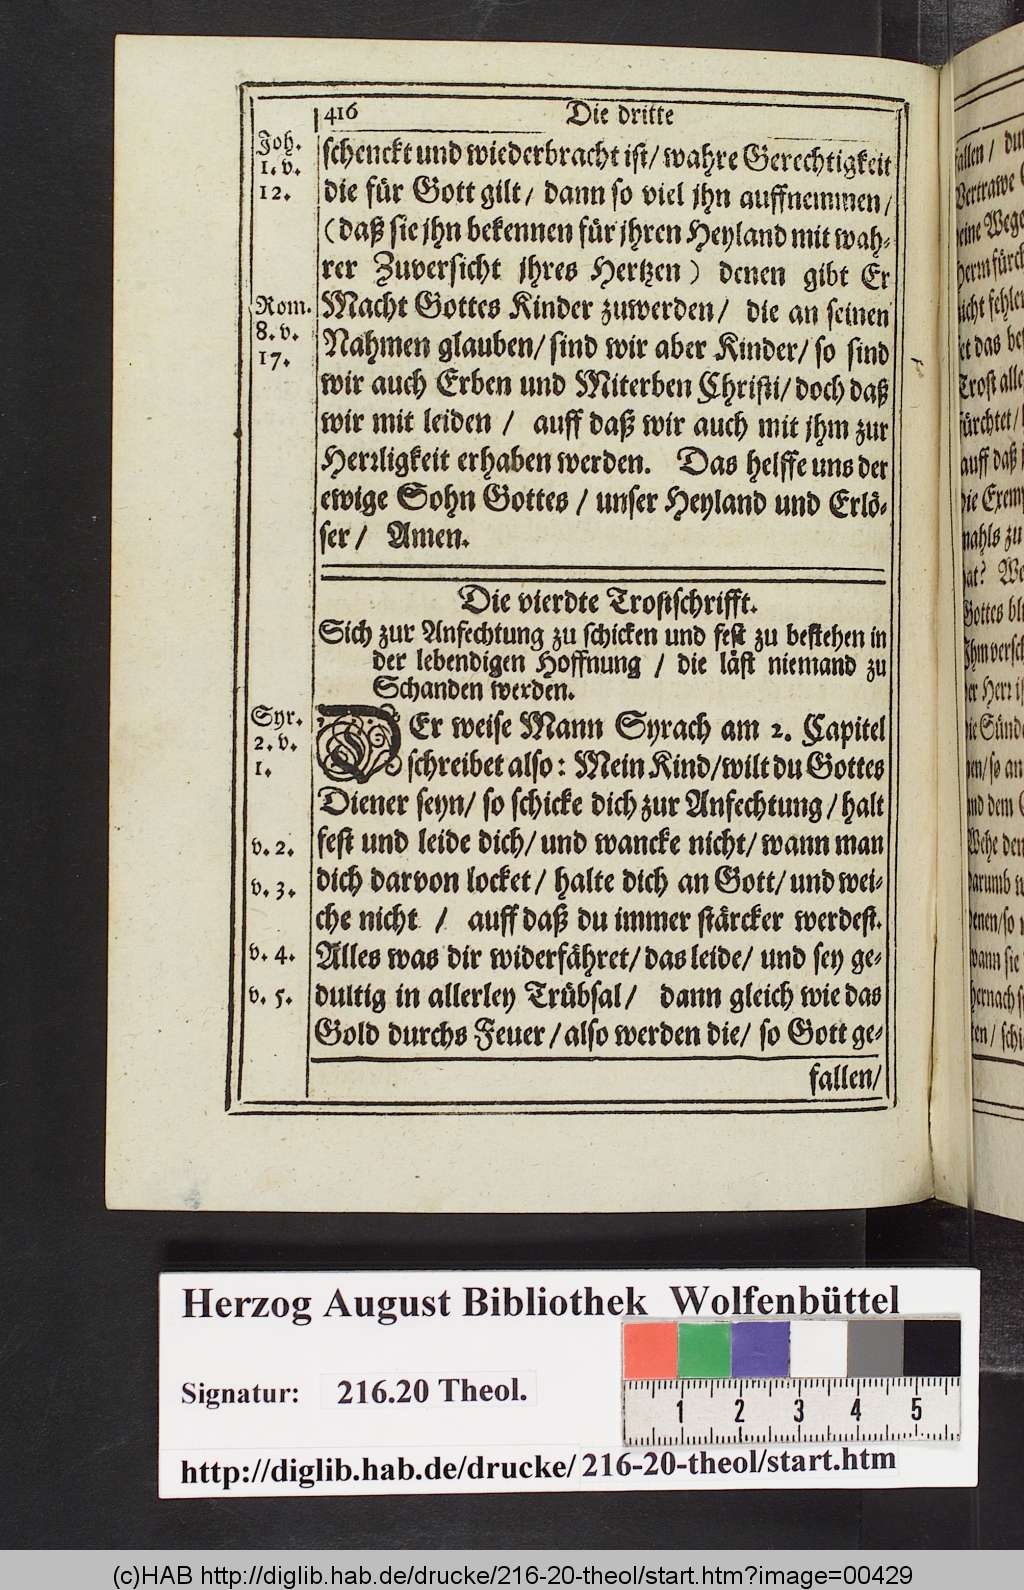 416 Die dritte
Joh.
1. v.
12.
schenckt und wiederbracht ist/ wahre Gerechtigkeit
die für Gott gilt/ dann so viel jhn auffnemmen/
(daß sie jhn bekennen für jhren Heyland mit wah-
rer Zuversicht jhres Hertzen) denen gibt Er
Rom.
8. v.
17.
Macht Gottes Kinder zuwerden/ die an seinen
Nahmen glauben/ sind wir aber Kinder/ so sind
wir auch Erben und Miterben Christi/ doch daß
wir mit leiden / auff daß wir auch mit jhm zur
Herrligkeit erhaben werden. Das helffe uns der
ewige Sohn Gottes / unser Heyland und Erlö-
ser/ Amen.
Die vierdte Trostschrifft.
Sich zur Anfechtung zu schicken und fest zu bestehen in
der lebendigen Hoffnung / die läst niemand zu
Schanden werden.
Syr.
2. v.
1.
DEr weise Mann Syrach am 2. Capitel
schreibet also: Mein Kind/wilt du Gottes
Diener seyn/ so schicke dich zur Anfechtung/ halt
v. 2.
fest und leide dich/ und wancke nicht/ wann man
v. 3.
dich darvon locket/ halte dich an Gott/ und wei-
che nicht / auff daß du immer stärcker werdest.
v. 4.
Alles was dir widerfähret/ das leide/ und sey ge-
v. 5.
dultig in allerley Trübsal/ dann gleich wie das
Gold durchs Feuer/ also werden die/ so Gott ge-
fallen/
fallen/
Vertrawe
seine Wege
nicht
das
Trost
fürchtet/
auff daß
die
zu
hat?
Gottes
der Herr
die
so
und dem
Wehe
darumb
denen/so
wann sie
hernach
Herzog August Bibliothek Wolfenbüttel
Signatur: 216.20 Theol.
1 2 3 4 5
http://diglib.hab.de/drucke/216-20-theol/start.htm
(c)HAB http://diglib.hab.de/drucke/216-20-theol/start.htm?image=00429